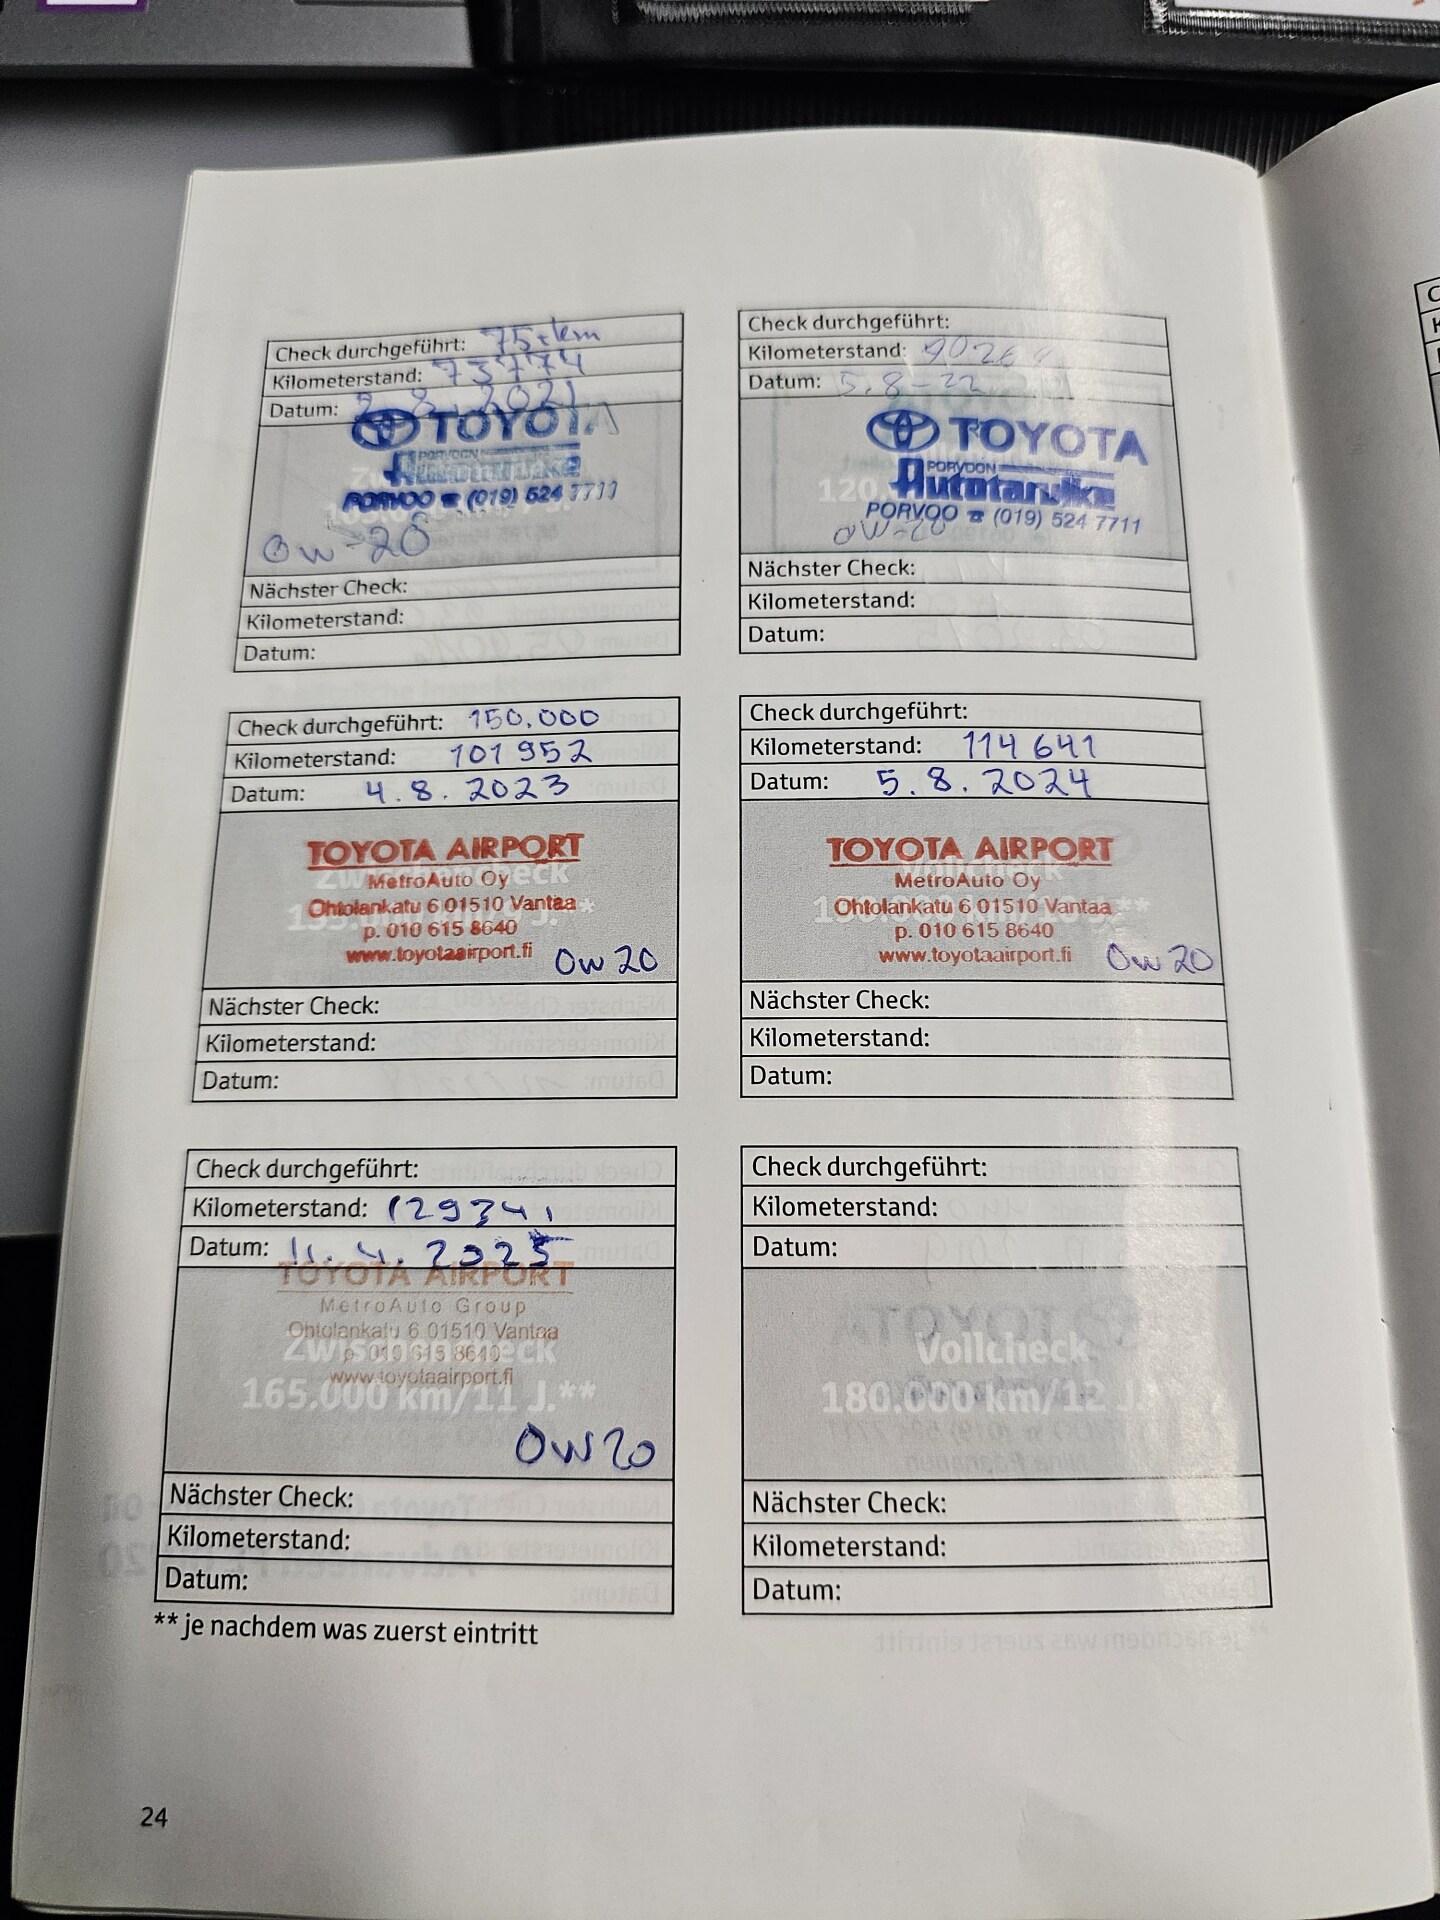 Check durchgeführt: 75 tkm
Kilometerstand: 73774
Datum: 2021
TOYOTA
PORVOON
Autotarvike
PORVOO ☎ (019) 524 7711
OW-20
Nächster Check:
Kilometerstand:
Datum:
Check durchgeführt:
Kilometerstand: 9026
Datum: 5.8-22
TOYOTA
PORVOON
Autotarvike
PORVOO ☎ (019) 524 7711
OW-20
Nächster Check:
Kilometerstand:
Datum:
Check durchgeführt: 150.000
Kilometerstand: 101 952
Datum: 4.8.2023
TOYOTA AIRPORT
Zwischencheck
MetroAuto Oy
Ohtolankatu 6 01510 Vantaa
p. 010 615 8640
www.toyotaairport.fi
OW 20
Nächster Check:
Kilometerstand:
Datum:
Check durchgeführt:
Kilometerstand: 114 641
Datum: 5.8.2024
TOYOTA AIRPORT
Vollcheck
MetroAuto Oy
Ohtolankatu 6 01510 Vantaa
p. 010 615 8640
www.toyotaairport.fi
OW 20
Nächster Check:
Kilometerstand:
Datum:
Check durchgeführt:
Kilometerstand:
Datum: 11.4.2025
TOYOTA AIRPORT
MetroAuto Group
Ohtolankatu 6 01510 Vantaa
Zwischencheck
p. 010 615 8640
www.toyotaairport.fi
165.000 km/11 J.**
OW 20
Nächster Check:
Kilometerstand:
Datum:
Check durchgeführt:
Kilometerstand:
Datum:
Vollcheck
180.000 km/12 J.**
Nächster Check:
Kilometerstand:
Datum:
** je nachdem was zuerst eintritt
24